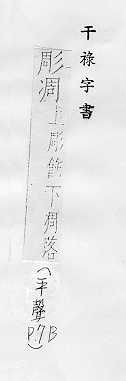 干祿字書
彫凋上彫飾下凋落
(平聲
P.7B)